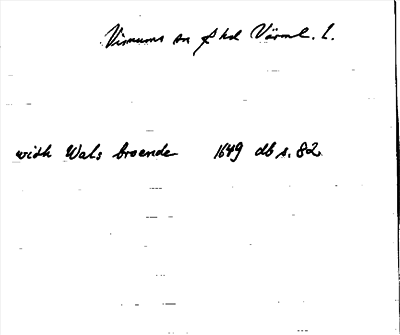 Visnums sn fhd Värml. l.
widh Wals broende 1649 db s. 82